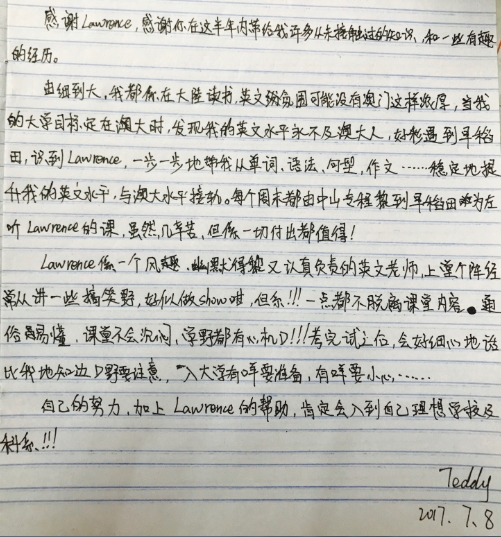 感谢Lawrence,感谢你在这半年内带给我许多从未接触过的知识、和一些有趣
的经历。
由细到大,我都系在大陆读书,英文氛围可能没有澳门这样浓厚,当我
的大学目标定在澳大时,发现我的英文水平永不及澳大人,好彩遇到早稻
田,识到Lawrence,一步一步地带我从单词、语法、句型、作文……稳定地提
升我的英文水平,与澳大水平接轨。每个周末都由中山专程黎到早稻田为左
听Lawrence的课,虽然几辛苦,但系一切付出都值得!
Lawrence系一个风趣、得黎又认真负责的英文老师,上堂个阵经
常从讲一些搞笑野,好似做show咁,但系!!!一点都不脱离课堂内容。通
俗易懂,课堂不会沉闷,学野都有心机D!!!考完试之后,会好细心地话
比我地知边D野要注意,入大学有咩要准备,有咩要小心……
自己的努力,加上Lawrence的帮助,肯定会入到自己理想学校及
科系!!!
Teddy
2017.7.8